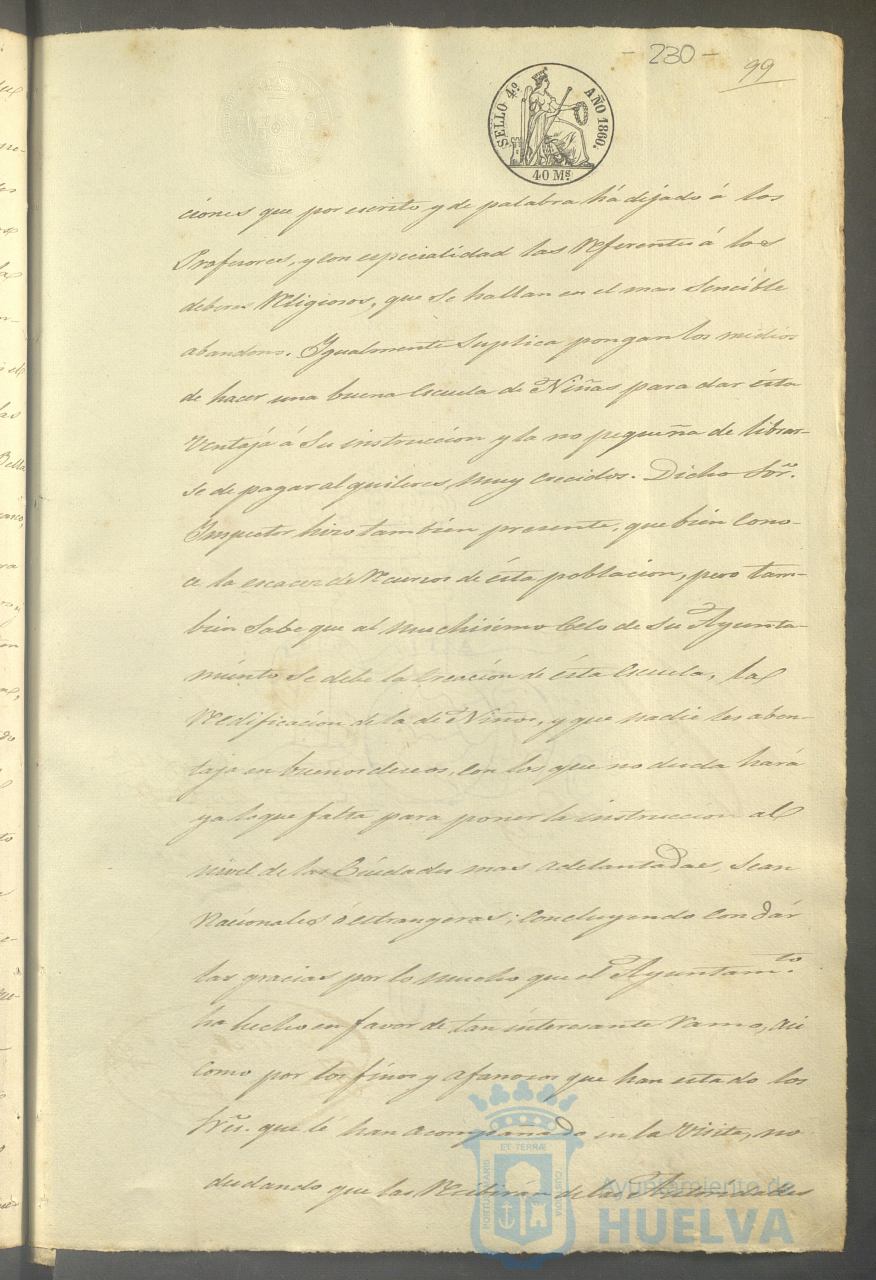 - 230 -
99
SELLO 4º AÑO 1860.
40 Mˢ
ciones que por escrito y de palabra há dejado á los
Profesores, y con especialidad las referentes á los
deberes religiosos, que se hallan en el mas sencible
abandono. Igualmente suplica pongan los medios
de hacer una buena escuela de Niñas para dar ésta
ventajá á su instruccion y la no pequeña de librar-
se de pagar alquileres, muy crecidos. Dicho Sor.
Inspector hizo tambien presente, que bien cono-
ce la escacez de recursos de ésta poblacion, pero tam-
bien sabe que al muchisimo celo de su Ayunta-
miento se debe la creación de ésta escuela, la
redificacion de la de Niños, y que nadie les aben-
taja en buenos deseos, con los que no duda hará
ya lo que falta para poner la instruccion al
nivel de las Ciudades mas adelantadas, sean
Nacionales ó estrangeras; concluyendo con dár
las gracias por lo mucho que el Ayuntamto.
ha hecho en favor de tan interesante ramo, asi
como por los finos y afanosos que han estado los
Sres. que lé han acompañado en la visita, no
dudando que las recibirán de las Autoridades
PORTUS MARIS ET TERRÆ CUSTODIA
Ayuntamiento de
HUELVA